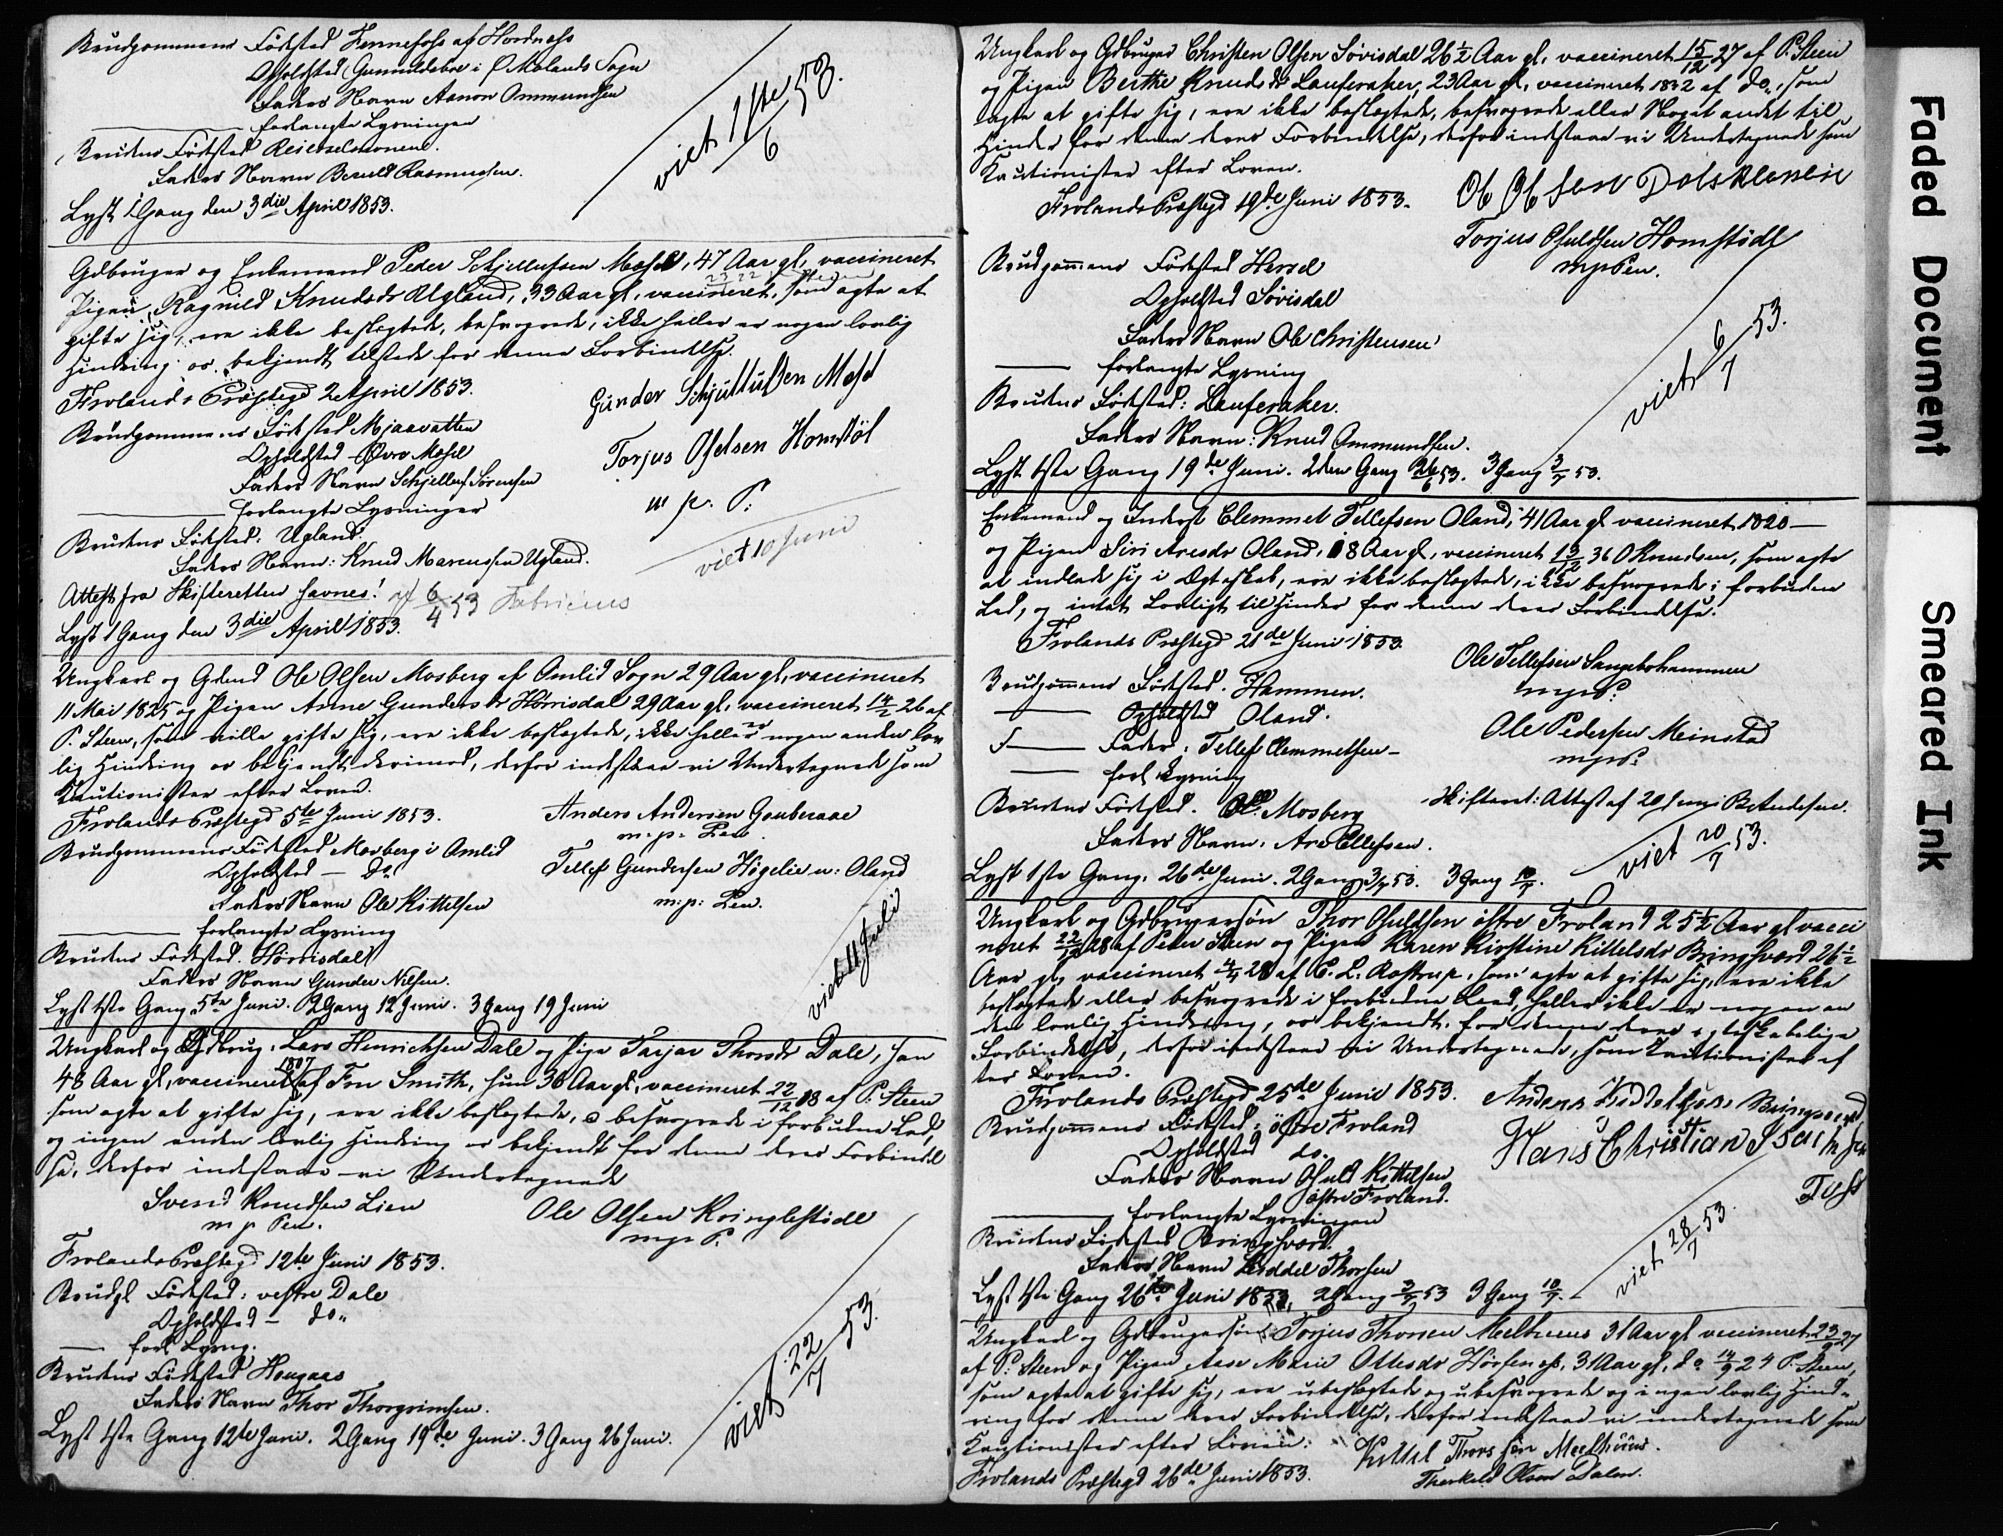 Brudgommens Födested Hennefoss af Hordnæss
Opholdsted Gunnildsboe i Ø Molands Sogn
Faders Navn Aanon Ommundsen
forlangte Lysningen
Brudens Födested
Faders Navn Berul Rasmussen.
Lyst 1 Gang den 3die April 1853.
viet 1ste/6 53.
Gdbruger og Enkemand Peder Schjellufsen Mosel, 47 Aar gl, vaccineret
Pigen Ragnild Knudsdr Ugland, 33 Aar gl, vaccineret, som agte at
gifte sig, ere ikke beslægtede, besvogrede, ikke heller er nogen lovlig
Hindring os bekjendt tilstede for denne Forbindelse.
Frolands Præstegd 2 April 1853.
Gunder Schjullufsen Mosel
Brudgommens Födested Mjaavatten
Opholdsted Øvre Mosel
Torjus Oselsen Homstöl
Faders Navn Schjelluf Sörensen
m. p. P.
forlangte Lysninger
Brudens Födested: Ugland.
viet 10 Juni
Faders Navn: Knud Marcussen Ugland.
Attest fra Skifteretten havnes! 6/4 53 Fabricius
Lyst 1 Gang den 3die April 1853.
Ungkarl og Gdmd Ole Olsen Mosberg af Omlid Sogn 29 Aar gl, vaccineret
11 Mai 1825 og Pigen Anne Gundersdr Hörrisdal 29 Aar gl, vaccineret 14/2 26 af
P. Steen, som ville gifte sig, ere ikke beslægtede, ikke heller er nogen anden lov-
lig Hindring os bekjendt derimod, derfor indstaae vi Undertegnede som
Kautionister efter Loven.
Frolands Præstegd 5te Juni 1853.
Anders Andersen Gauberaae
m: p: Pen
Brudgommens Födested Mosberg i Omlid
Opholdsted — Do
Tellef Gundersen Högelie u: Oland
m: p: Pen.
Faders Navn Ole Kittelsen
forlangte Lysning
Brudens Födested. Hörrisdal
Faders Navn Gunder Nilsen.
viet 11 Juli
Lyst 1ste Gang 5te Juni. 2 Gang 12 Juni. 3 Gang 19 Juni
Ungkarl og Gdbrug. Lars Henrichsen Dale og Pige Tarjer Thorsdr Dale, han
48 Aar gl, vaccineret 1807 af Fon Smith, hun 36 Aar gl, vaccineret 22/12 18 af P. Steen
som agte at gifte sig, ere ikke beslægtede, besvogrede i forbudne Led,
og ingen anden lovlig Hindring er bekjendt for denne deres Forbindel
se, derfor indstaae vi Undertegnede
Svend Knudsen Lien
m p Pen.
Ole Olsen Kringlestödl
mp. P.
Frolands Præstegd 12te Juni 1853.
Brudgl Födested: vestre Dale
Opholdsted — do.
— forl Lysng.
Brudens Födested Hougaas
Faders Navn Thor Thorgrimsen.
viet 22/7 53.
Lyst 1ste Gang 12te Juni. 2 Gang 19de Juni. 3 Gang 26 Juni.
Ungkarl og Gdbruger Christen Olsen Sövisdal 26 ½ Aar gl, vaccineret 15/12 27 af P. Steen
og Pigen Berthe Knudsdr Lauferaker, 23 Aar gl, vaccineret 1832 af do, som
agte at gifte sig, ere ikke beslægtede, besvogrede eller Noget andet til
Hinder for denne deres Forbindelse, derfor indstaae vi Undertegnede som
Kautionister efter Loven.
Frolands Præstegd 19de Juni 1853.
Ole Olsen Dolsklenen
Torjus Osuldsen Homstödl
mp Pen.
Brudgommens Födested Hersel
Opholdsted Sövisdal
Faders Navn Ole Christensen
— forlangte Lysning
viet 6/7 53.
Brudens Födested: Lauferaker.
Faders Navn: Knud Ommundsen.
Lyst 1ste Gang 19de Juni. 2den Gang 26/6 53. 3 Gang 3/7 53.
Enkemand og Inderst Clemmet Tellefsen Oland, 41 Aar gl vaccineret 1820 —
og Pigen Siri Aresdr Oland, 18 Aar gl, vaccineret 36 O Knudsen, som agte
at indlade sig i Ægteskab, ere ikke beslægtede, ikke besvogrede i forbudne
Led, og intet Lovligt til Hinder for denne deres Forbindelse.
Frolands Præstegd 21de Juni 1853.
Ole Tellefsen Sangebohammen
mp P.
Brudgommens Födested. Hammen.
— Opholdsted Oland.
Ole Pedersen Meinstad
mp P.
F — Fader. Tellef Clemmetsen —
— forl Lysning
Brudens Födested. Mosberg
Skifteret: Attest af 20 Juni
Faders Navn. Are Ellefsen.
viet 20/7 53.
Lyst 1ste Gang. 26de Juni. 2 Gang 3/7 53. 3 Gang 10/7.
Ungkarl og Gdbrugersön Thor Osuldsen östre Froland 25 ½ Aar gl vacci
neret 22/12 28 af Peter Steen og Pigen Karen Kirstine Kittelsdr Bringsvord 26 ½
Aar gl, vaccineret 4/4 28 af C. L. Rostrup, som agte at gifte sig, ere ikke
beslægtede eller besvogrede i forbudne Leed, heller ikke er nogen an
den lovlig Hindring, os bekjendt, for denne deres ægteskabelige
Forbindelse, derfor indstaae vi Undertegnede, som Kautionister ef
ter Loven.
Frolands Præstegd 25de Junie 1853.
Anders Kiddelsen Bringsverd
Brudgommens Födested: östre Froland
Hans Christian Isachsen
Opholdsted do.
Faders Navn Osuld Kittelsen
östre Froland.
— forlangte Lysningen
Brudens Födested Bringsvord
Faders Navn Kiddel Thorsen
viet 28/7 53.
Lyst 1ste Gang 26de Juni 1853, 2 Gang 3/7 53 3 Gang 10/7.
Ungkarl og Gdbrugersön Torjus Thorsen Meelhuus 31 Aar gl vaccineret 27
af P. Steen og Pigen Aase Marie Ottesdr 31 Aar gl, do 14/9 24 P. Steen,
som agte at gifte sig, ere ubeslægtede og ubesvogrede og ingen lovlig Hind-
ring for denne deres Forbindelse, derfor indstaae vi undertegnede som
Kautionister efter Loven:
Kittel Thorssön Meelhuus.
Frolands Præstegd 26de Juni 1853.
Therkeld Olsen Dalen.
Faded Document
Smeared Ink